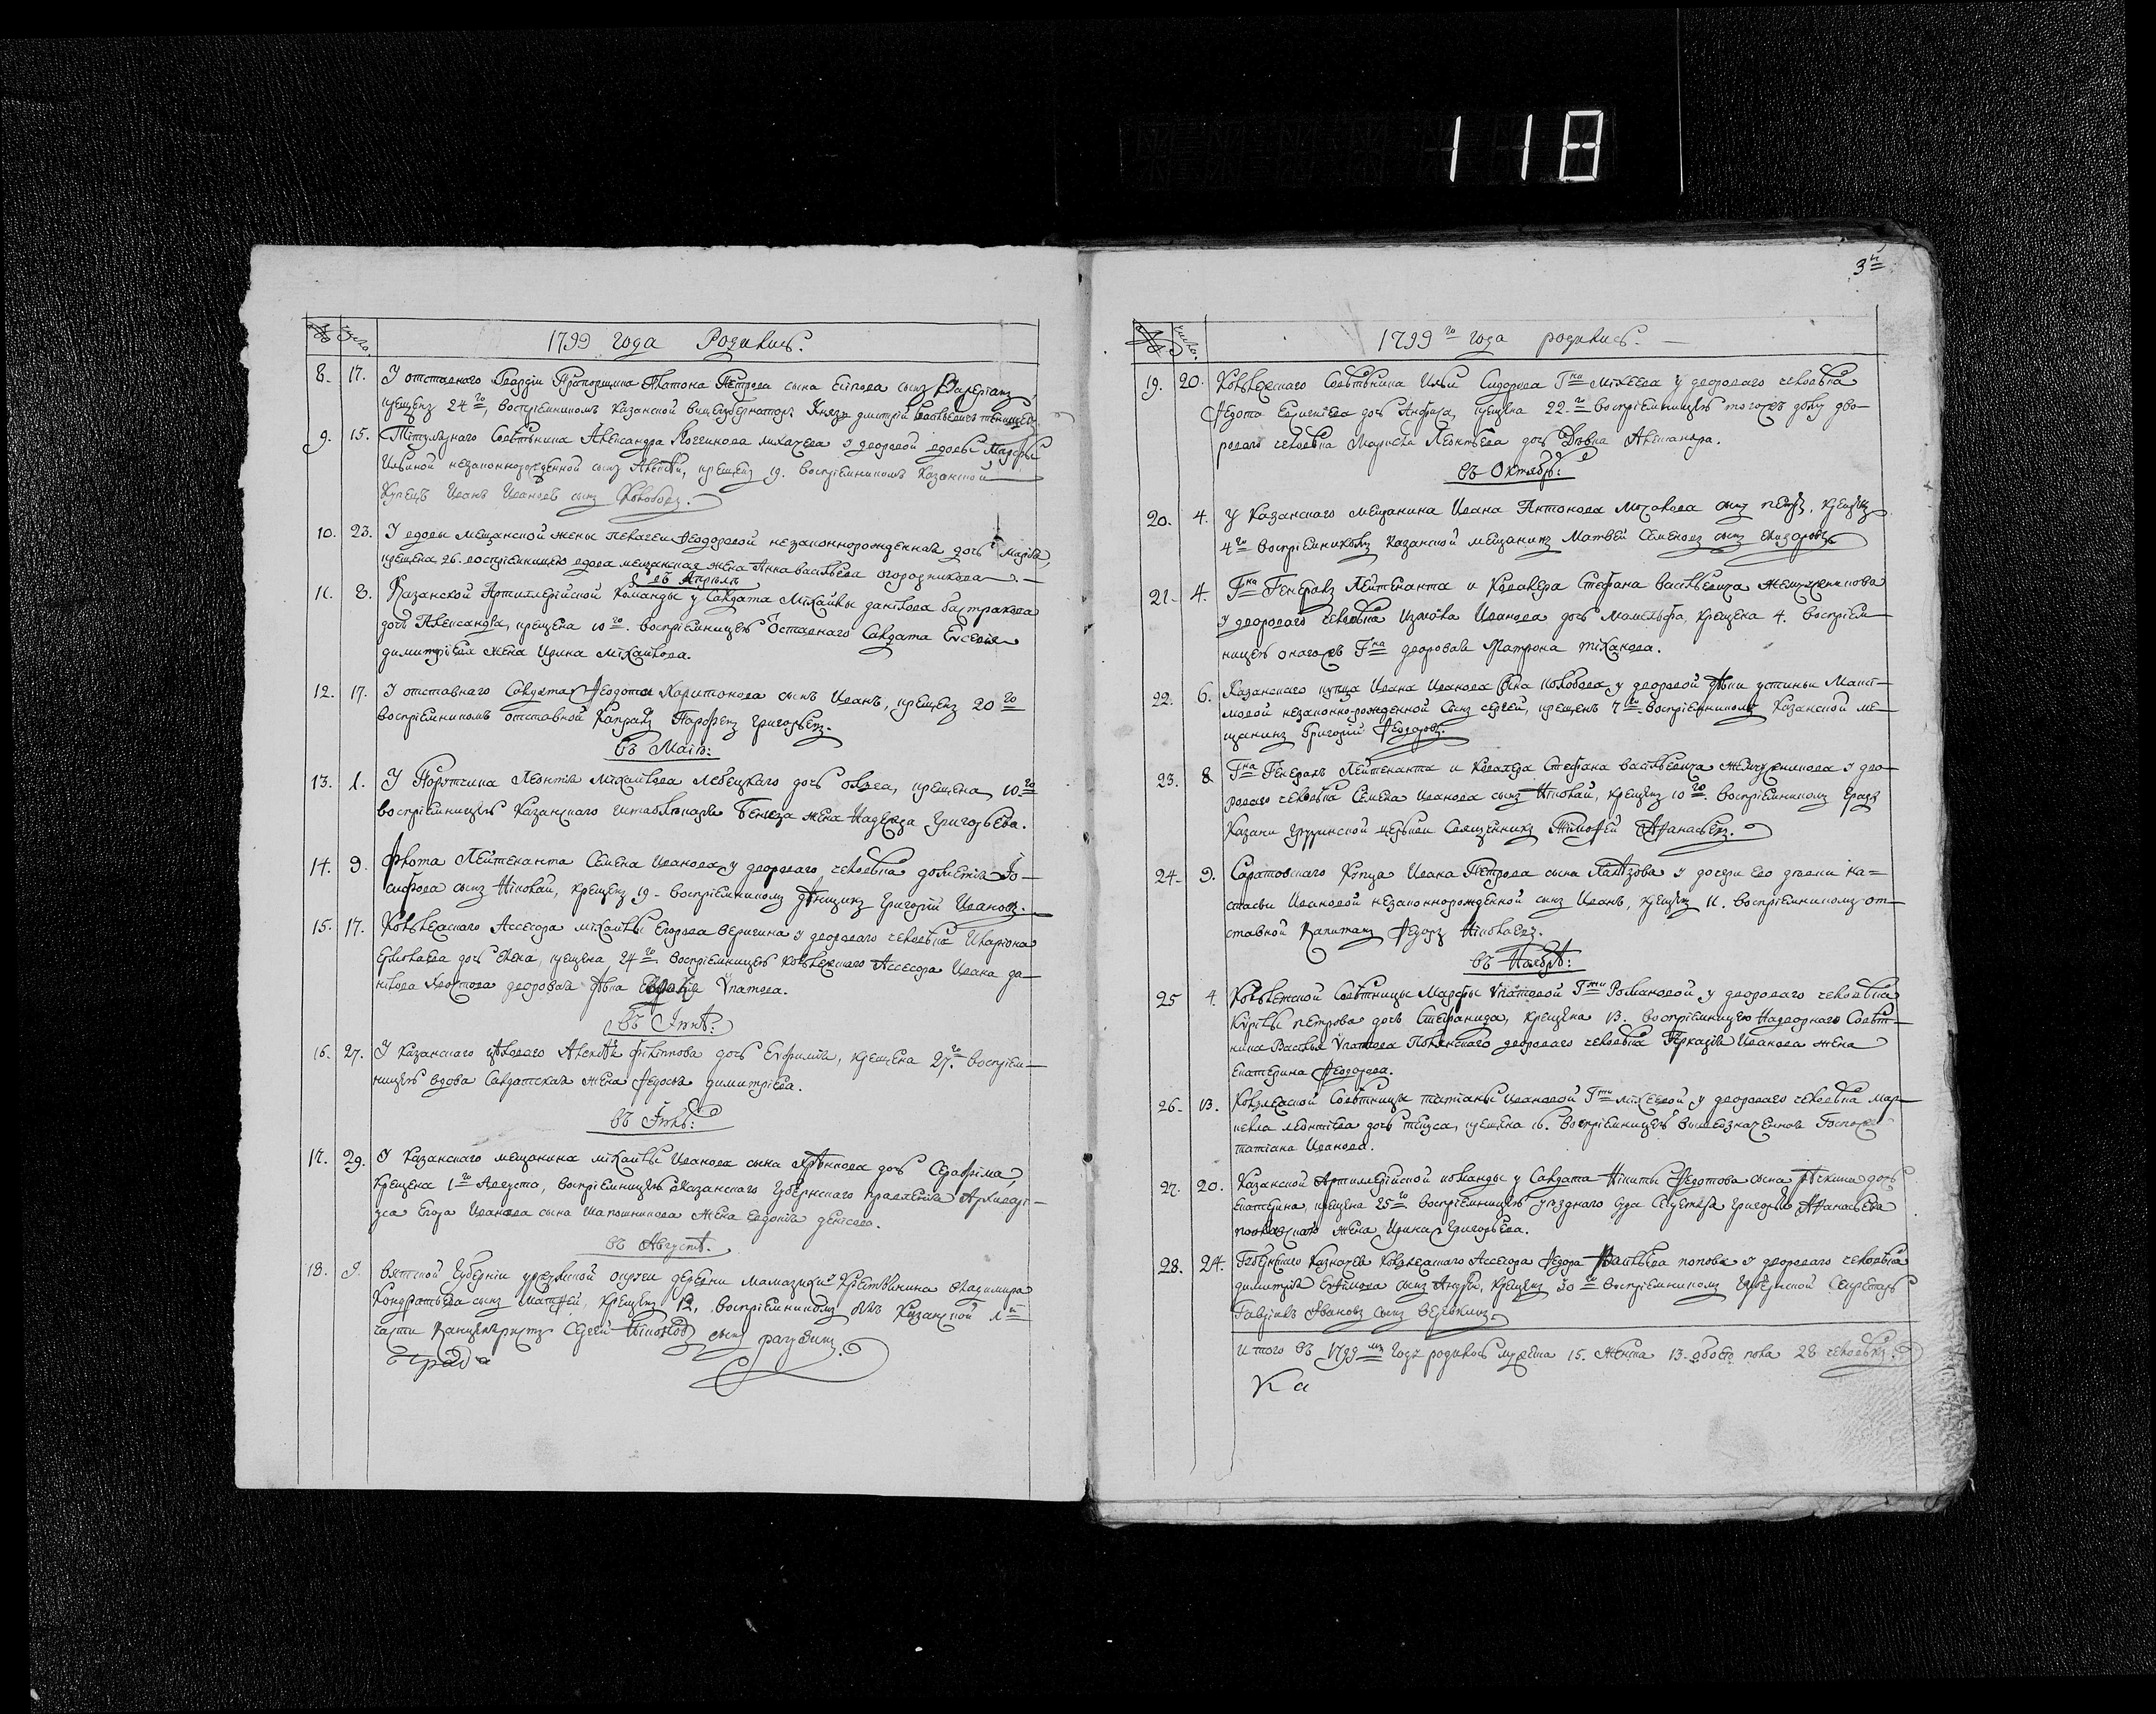 118
3й
№ Число.
1799 года Родились.
8. 17. У отставного Гвардіи Прапорщика Платона Петрова сына сынъ Валеріанъ,
крещенъ 24го, воспріемникомъ Казанской Вицегубернаторъ Князь Димитрій Васильевичъ Тенишевъ
9. 15. Титулярнаго Советника Александра у дворовой вдовы Марфы
Ильиной незаконнорожденной сынъ Алексѣй, крещенъ 19. воспріемникомъ Казанской
Купецъ Иванъ Ивановъ сынъ Колобовъ.
10. 23. У вдовы мещанской жены Пелагеи Феодоровой незаконнорожденная дочь Марія,
крещена 26. воспріемницею вдова мещанская жена Анна Васильева Огородникова
въ Апрѣлѣ
11. 8. Казанской Артиллерійской Команды у Салдата Міхайлы Данілова Бастракова
дочь Александра, крещена 10го. воспріемницею Отставнаго Салдата Евсевія
Димитріева жена Ирина Міхайлова.
12. 17. У отставнаго Салдата Феодота Харитонова сынъ Иванъ, крещенъ 20го
воспріемникомъ отставной Капралъ Парфенъ Григорьевъ.
въ Маіѣ:
13. 1. У Порутчика Леонтія Міхайлова Лебецкаго дочь Ольга, крещена 10го
воспріемницею Казанскаго штаблекаря Бенеза жена Надежда Григорьева.
14. 9. Флота Лейтенанта Семена Иванова у двороваго человѣка Дометія Іо-
сифова сынъ Ніколай, крещенъ 19- воспріемникомъ Денщикъ Григорій Ивановъ.
15. 17. Коллежскаго Ассесора Міхайлы Егорова Веригина у двороваго человѣка Иларіона
Ермолаева дочь Елена, крещена 24го. воспріемницею коллежскаго Ассесора Ивана Да-
нілова дворовая дѣвка Ѵпатова.
въ Іюнѣ:
16. 27. У Казанскаго цеховаго Алексѣя Филіппова дочь Евфимія, крещена 27го. воспріем-
ницею вдова Салдатская жена Федосья Димитріева.
въ Іюлѣ:
17. 29. У Казанскаго мещанина Міхайлы Иванова сына дочь Серафіма,
крещена 1го Августа, воспріемницею Казанскаго Губернскаго правленія Архиварі-
уса Егора Иванова сына Шапошникова жена Евдокія Денісова.
въ Августѣ.
18. 9. Вятской Губерніи уржумской округи деревни крестьянина Владимира
Кондратьева сынъ Матфей, крещенъ 12, воспріемникомъ Казанской 1й
части Канцеляристъ Сергей сынъ
№ Число.
1799го года родились.
19. 20. Коллежскаго Советника Ильи Сидорова Гна Міхеева у двороваго человѣка
Федота дочь Анфиса, крещена 22.го воспріемницею тогожъ дому дво-
роваго человѣка Леонтьева дочь Дѣвка Александра.
въ Октябрѣ:
20. 4. У Казанскаго мещанина Ивана Антонова сынъ Петръ, крещенъ
4го воспріемникомъ Казанской мещанинъ Матвей Семеновъ сынъ
21. 4. Гна Генералъ Лейтенанта и Кавалера Стефана Васильевича Жемчужникова
у двороваго человѣка Измайла Иванова дочь Мамельфа, крещена 4. воспріем-
ницею онагожъ Гна дворовая Матрона
22. 6. Казанскаго купца Ивана Иванова Сна Колобова у дворовой дѣвки Устиньи Макси-
мовой незаконнорожденной Сынъ Сергей, крещенъ 7го воспріемникомъ Казанской ме-
щанинъ Григорій Феодоровъ.
23. 8 Гна Генералъ Лейтенанта и Кавалера Стефана Васильевича Жемчужникова у дво-
роваго человѣка Семена Иванова сынъ Ніколай, крещенъ 10го. воспріемникомъ града
Казани Грузинской церькви Священникъ Тімофей Афанасьевъ.
24. 9. Саратовскаго Купца Ивана Петрова сына у дочери его дѣвки На-
стасьи Ивановой незаконнорожденной сынъ Иванъ, крещенъ 11. воспріемникомъ от-
ставной Капитанъ Федоръ Ніколаевъ.
въ Ноябрѣ:
25 4. Коллежской Советницы Марфы Ѵпатовой Гжи Романовой, у двороваго человѣка
Кѵрилы Петрова дочь Стефанида, крещена 13. воспріемницею Надворнаго Совет-
ника Василья Ѵпатова двороваго человѣка Иванова жена
Екатерина Феодорова.
26. 13. Коллежской Советницы Татіаны Ивановой Гжи Міхеевой у двороваго человѣка Мар-
кела Леонтіева дочь Таиса, крещена 16. воспріемницею вышеозначенная Госпожа
Татіана Иванова.
27. 20. Казанской Артиллерійской команды у Салдата Нікиты Федотова сына дочь
Екатерина, крещена 25го воспріемницею уѣзднаго Суда Секретаря Григорья Афанасьева
жена Ирина Григорьева.
28. 24. Губернскаго Казначея Коллежскаго Ассесора Федора Васильева Попова у двороваго человѣка
Димитрія сынъ Андрей, крещенъ 30го воспріемникомъ Губернской Секретарь
Гавріилъ Івановъ сынъ
Итого въ 1799мъ году родилось мужеска 15. женска 13. обоего пола 28 человѣкъ.